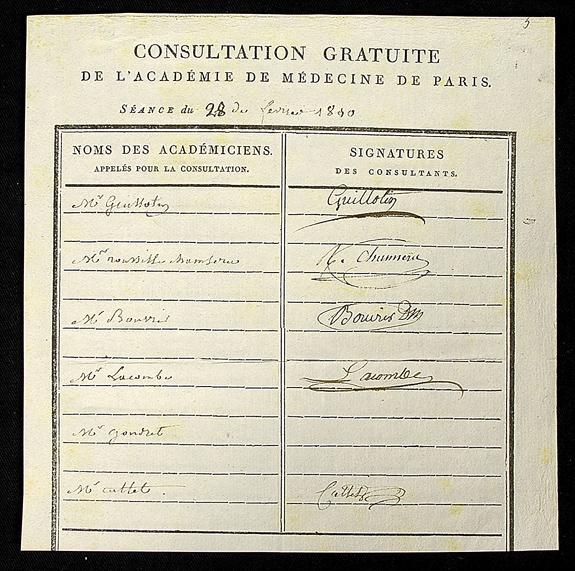 5
CONSULTATION GRATUITE
DE L'ACADÉMIE DE MÉDECINE DE PARIS.
SÉANCE du 28 de fevrier 1810
NOMS DES ACADÉMICIENS.
APPELÉS POUR LA CONSULTATION.
SIGNATURES
DES CONSULTANTS.
Mr Guillotin
Guillotin
Mr
Mr Bouvris
Bouvris DM
Mr Lacombe
Lacombe
Mr gondret
Mr cattet.
Cattet